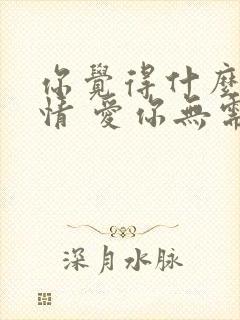 你覺得什麼
情 愛你無需
深月水脉